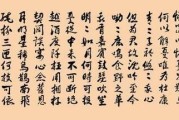 何以解憂唯有杜康
青々子衿悠々我心
但为君故沉吟至今
呦々鹿鳴食野之苹
我有嘉賓鼓瑟吹笙
明々如月何時可掇
憂從中来不可斷絕
越陌度阡枉用相存
契闊談讌心念舊恩
月明星稀烏鵲南飛
繞樹三匝何枝可依